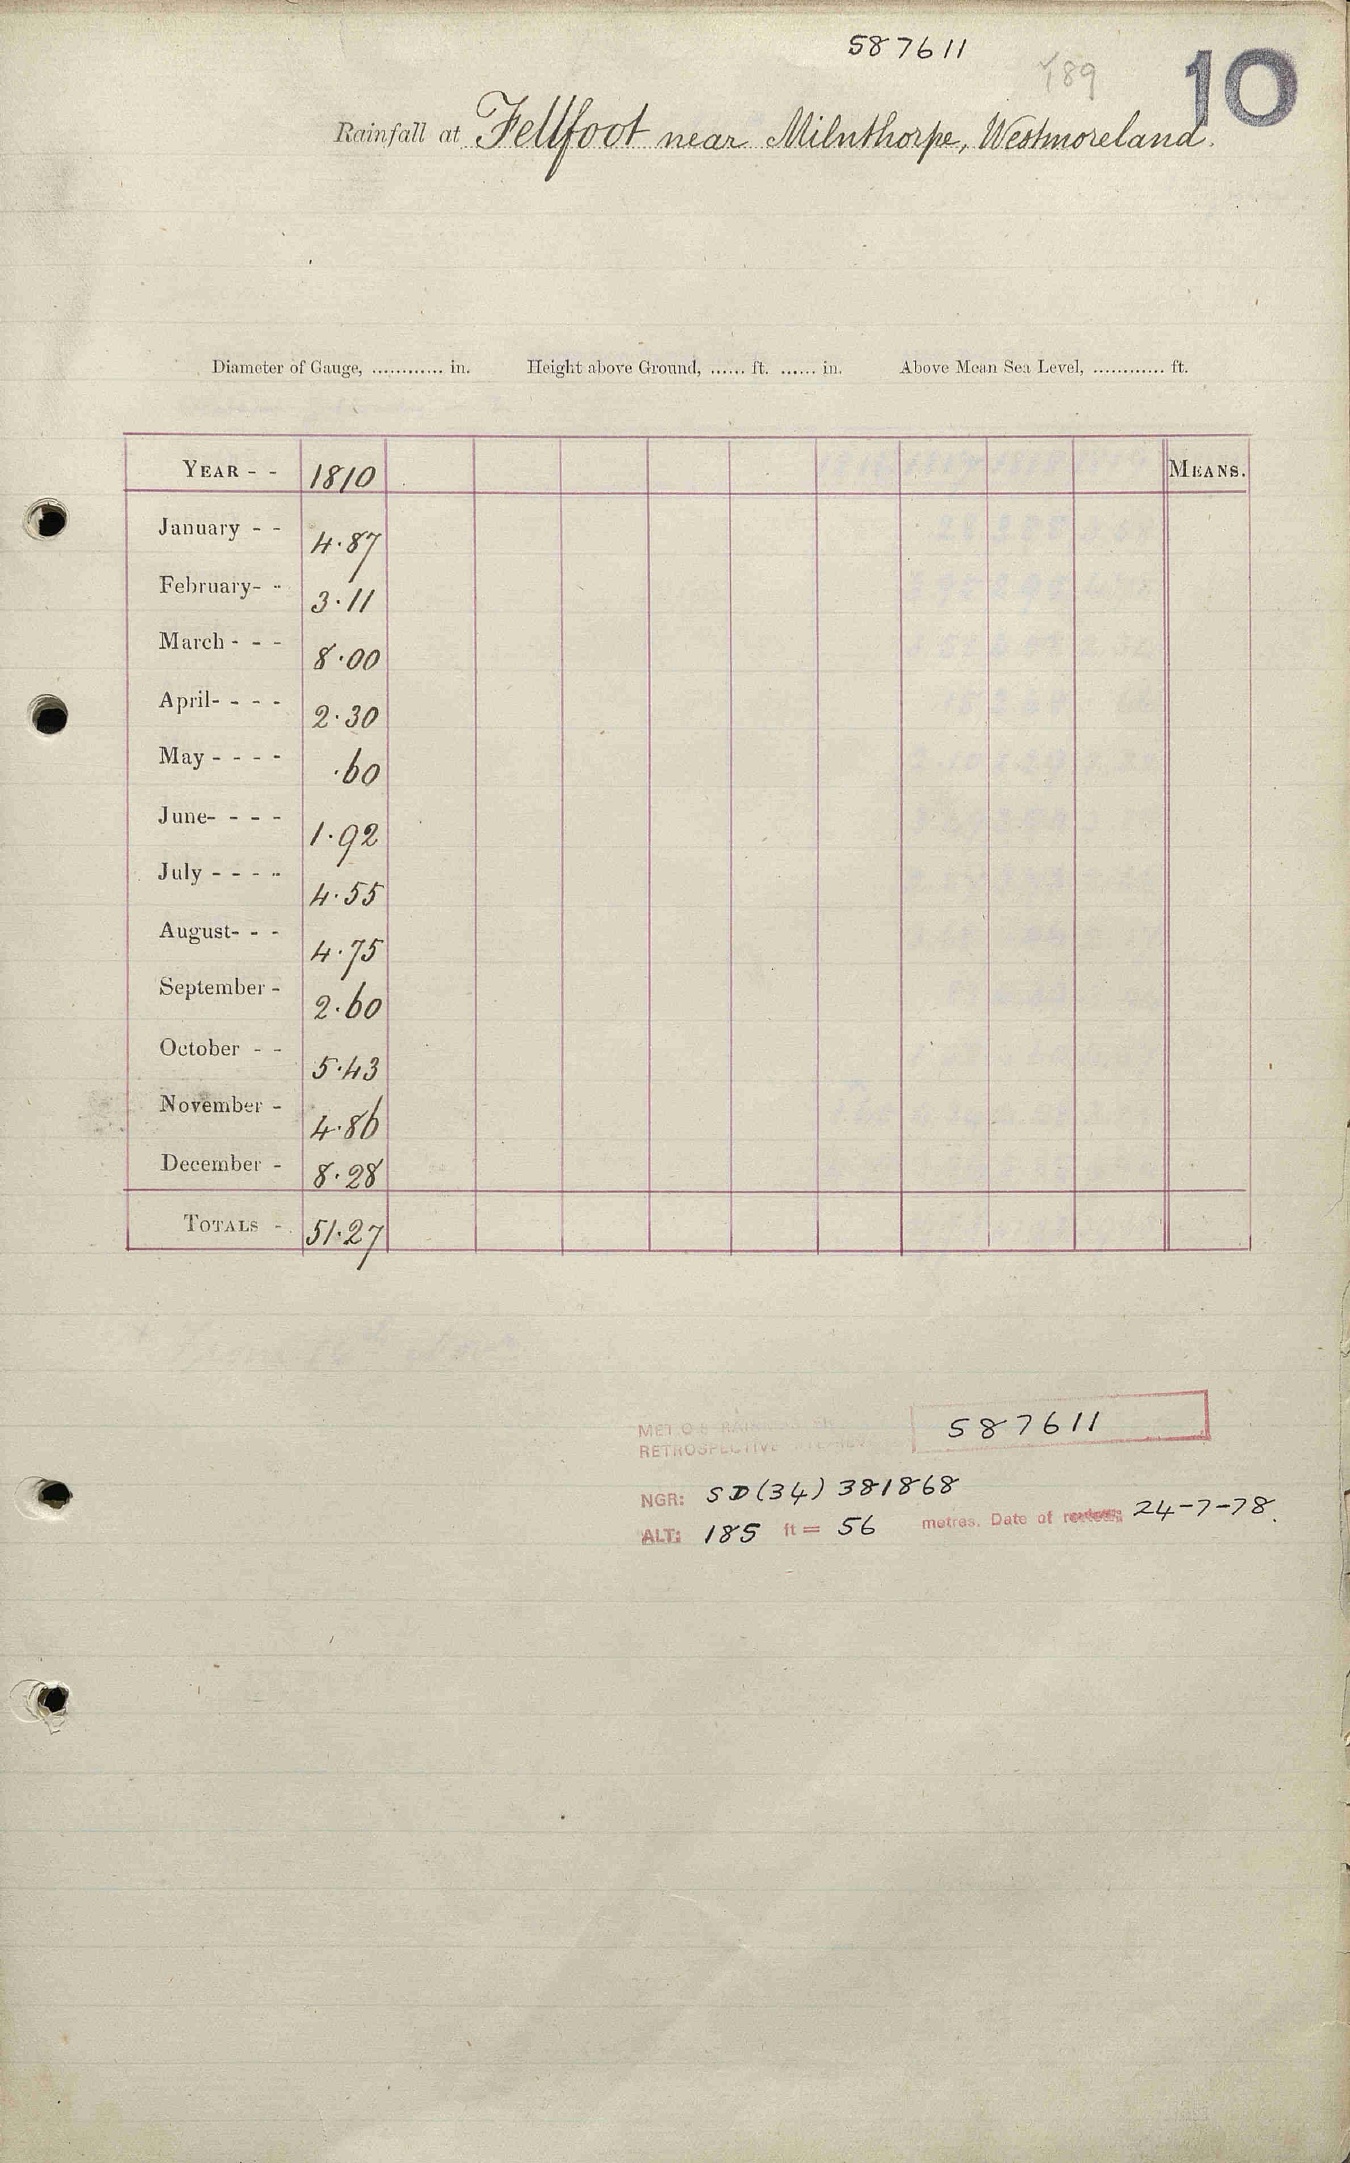 587611
189
10
Rainfall at Fellfoot near Milnthorpe, Westmoreland.
Diameter of Gauge, ............ in. Height above Ground, ...... ft. ...... in. Above Mean Sea Level, ............ ft.
YEAR - - 1810 MEANS.
January - - 4.87
February- - 3.11
March - - - 8.00
April- - - - 2.30
May - - - - .60
June- - - - 1.92
July - - - - 4.55
August- - - 4.75
September - 2.60
October - - 5.43
November - 4.86
December - 8.28
TOTALS - 51.27
MET.O.8 587611
RETROSPECTIVE
NGR: SD(34) 381868
ALT: 185 ft = 56 metres. Date of 24-7-78.